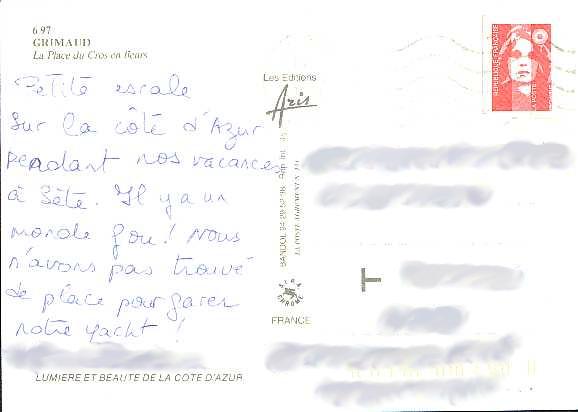 6 97
GRIMAUD
La Place du Cros en fleurs
Petite escale
sur la côte d'Azur
pendant nos vacances
à Sète. Il y a un
monde fou! Nous
n'avons pas trouvé
de place pour garer
notre yacht!
LUMIERE ET BEAUTE DE LA COTE D'AZUR
Les Editions
Aris
BANDOL 94 29 52 96
FRANCE
REPUBLIQUE FRANÇAISE
LA POSTE